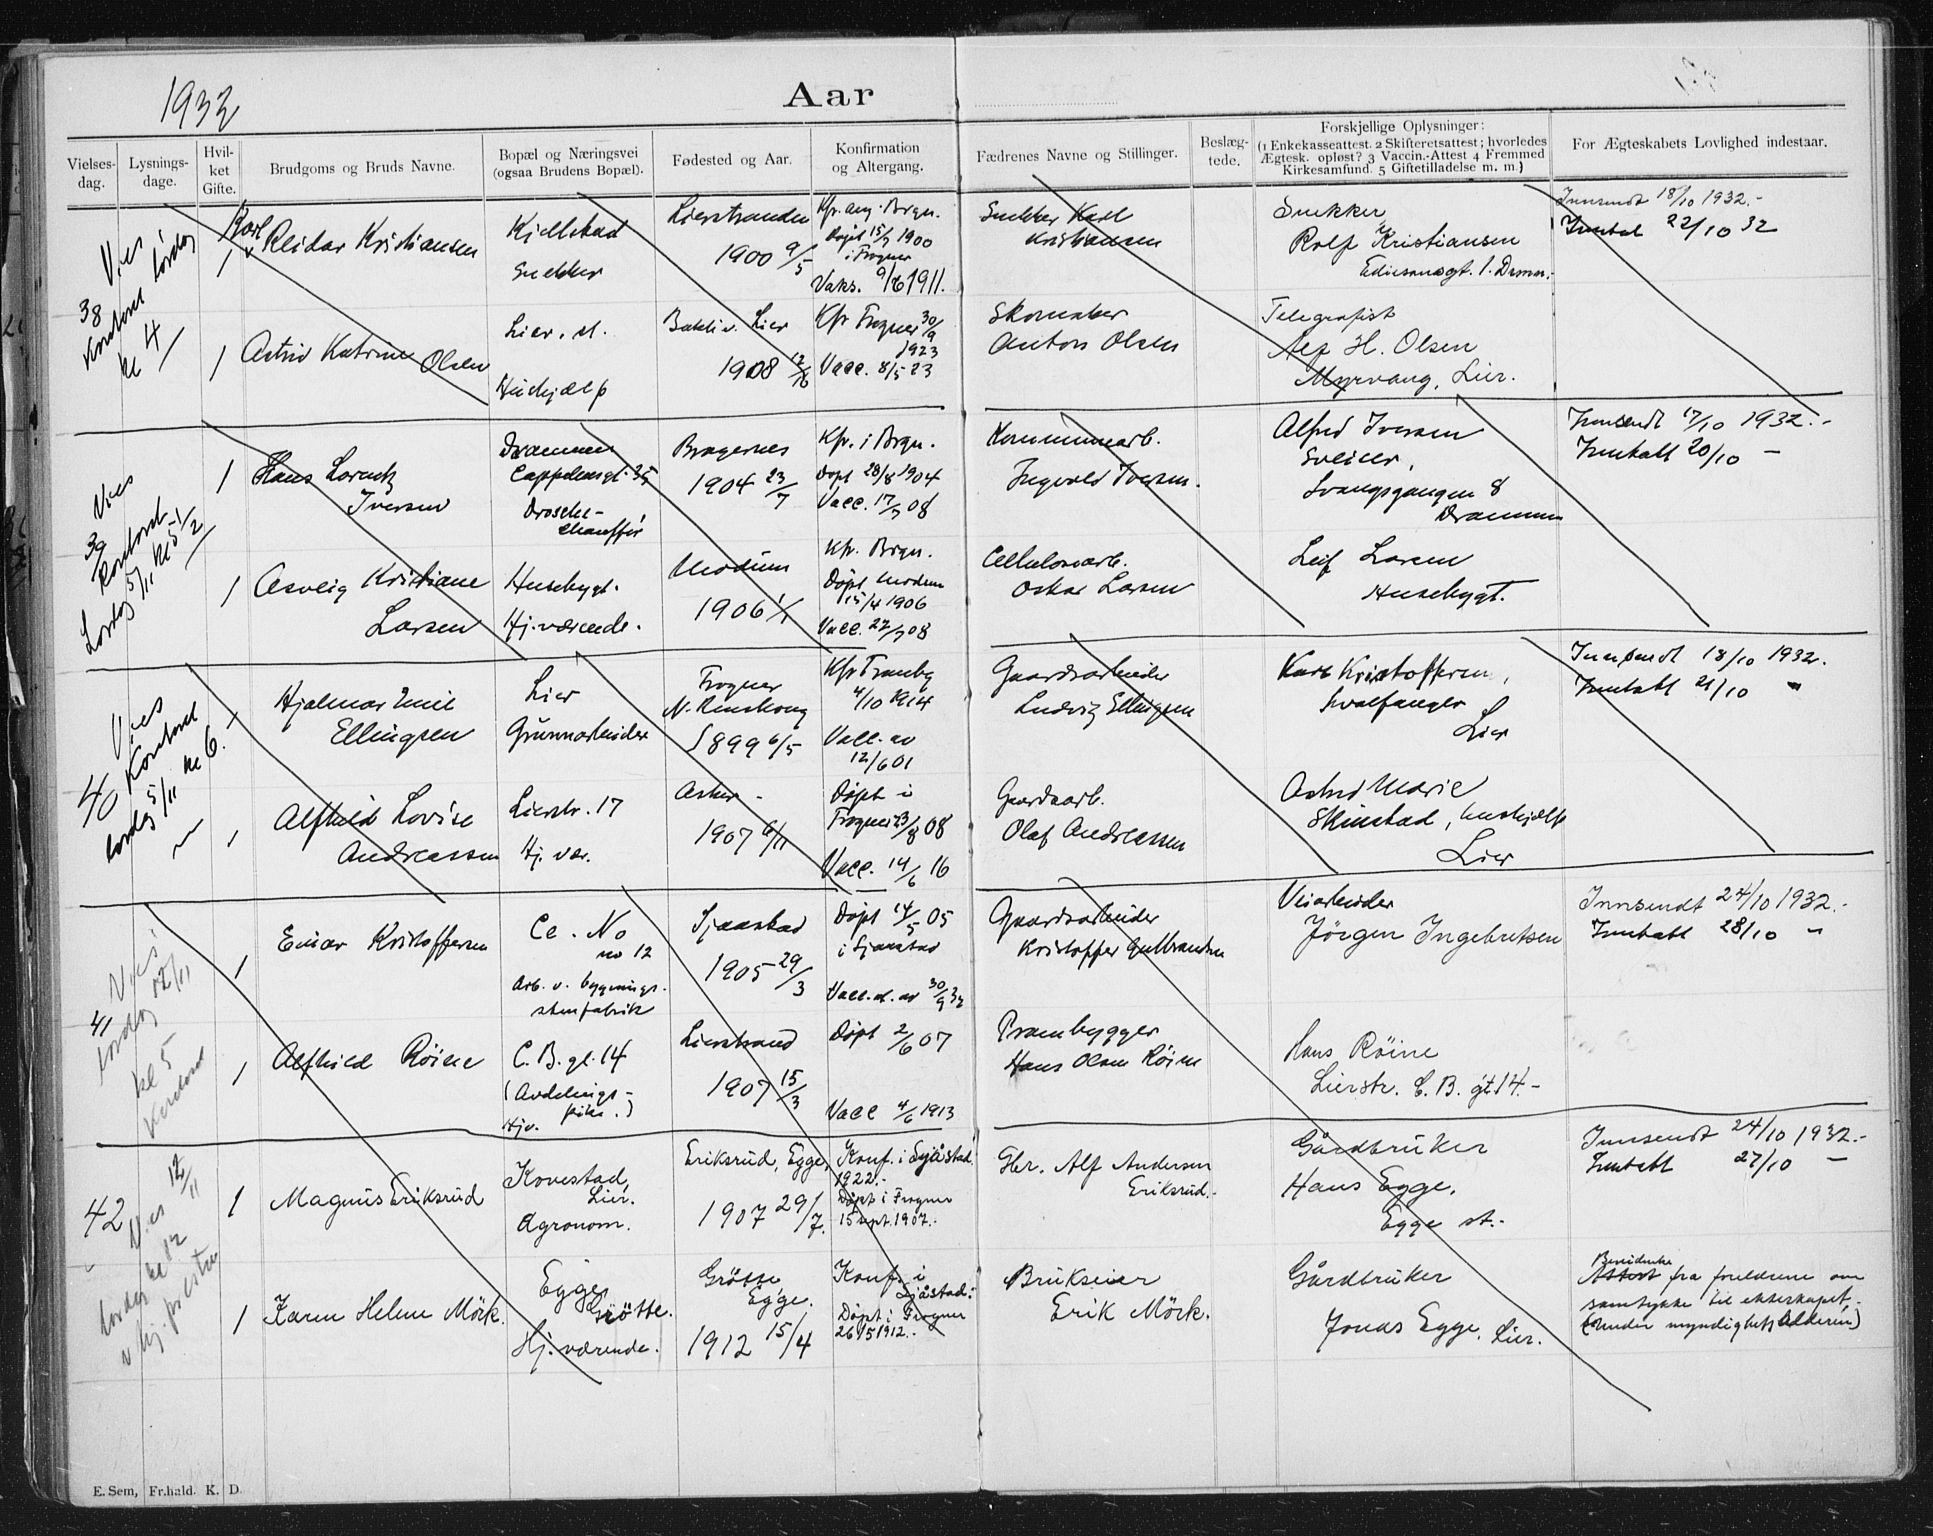 1932
Aar
Vielses-
dag.
Lysnings-
dage.
Hvil-
ket
Gifte.
Brudgoms og Bruds Navne.
Bopæl og Næringsvei
(ogsaa Brudens Bopæl).
Fødested og Aar.
Konfirmation
og Altergang.
Fædrenes Navne og Stillinger.
Beslæg-
tede.
Forskjellige Oplysninger:
(1 Enkekasseattest. 2 Skifteretsattest; hvorledes
Ægtesk. opløst? 3 Vaccin.-Attest 4 Fremmed
Kirkesamfund. 5 Giftetilladelse m. m.)
For Ægteskabets Lovlighed indestaar.
38
Vies
kontoret lørdag
kl 4
1
Karl
Reidar Kristiansen
Kjellstad
Snekker
Lierstranden
1900 9/5
Kfr. Brgn.
Døpt 15/7 1900
i Frogner
Vaks. 9/6 1911.
Snekker Karl
Kristiansen
Snekker
Rolf Kristiansen
Edisonsgt. 1. Drmn.
Innsendt 18/10 1932.-
Inntat 22/10 32
1
Astrid Katrine Olsen
Lier. st.
Hushjælp
Lier
1908 12/6
Kfr Frogner 30/9
1923
Vacc. 8/5 23
Skomaker
Anton Olsen
Telegrafist
Alf H. Olsen
Myrvang, Lier.
39
Vies
Kontoret
Lørdag 5/11 kl 5 1/2
1
Hans Lorentz
Iversen
Drammen
Cappelensgt. 35
Drosche-
chauffør
Bragernes
1904 23/7
Kfr. i Brgn.
Døpt 28/8 1904
Vacc. 17/7 08
Kommunearb.
Ingvald Iversen.
Alfred Iversen
Sveiser,
Svangsgangen 8
Drammen
Innsendt 17/10 1932.-
Inntatt 20/10 -
1
Aasveig Kristiane
Larsen
Husebygt.
Hj. værende.
Modum
1906 1/1
Kfr. Brgn.
Døpt Modum
15/4 1906
Vacc. 27/7 08
Cellulosearb.
Oskar Larsen
Leif Larsen
Husebygt.
40
Vies
Kontoret
lørdag 5/11 kl 6.
1
Hjalmar Emil
Ellingsen
Lier
Grunnarbeider
Frogner
1899 6/5
Kfr Tranby
4/10 1914
Vacc. av
12/6 01
Gaardsarbeider
Ludvig Ellingsen
Karl Kristoffersen,
hvalfanger
Lier
Innsendt 18/10 1932.
Inntatt 21/10 "
1
Alfhild Lovise
Andreassen
Lierstr. 17
Hj. vær.
Asker -
1907 6/11
Døpt i
Frogner 23/8 08
Vacc. 14/6 16
Gaardsarb.
Olaf Andreassen
Astrid Marie
Skinstad, hushjælp
Lier
41
Vies
lørdag 12/11
kl 5
kontoret
1
Einar Kristoffersen
no 12
Arb. v. bygnings-
stenfabrik
Sjaastad
1905 29/3
Døpt 14/5 05
i Sjaastad
Vacc. at. av 30/9 32
Gaardsarbeider
Kristoffer Gulbrandsen
Veiarbeider
Jörgen Ingebretsen
Innsendt 24/10 1932.-
Inntatt 28/10 "
1
Alfhild Röine
C. B. gt. 14
(Avdelings-
pike.)
Hjv.
Lierstrand
1907 15/3
Døpt 2/6 07
Vacc 4/6 1913
Prambygger
Hans Olsen Röine
Hans Röine
Lierstr. C. B. gt. 14.-
42
Vies 12/11
lørdag kl 12
1
Magnus Eriksrud
Kovestad,
Lier.
Agronom.
Eriksrud, Egge,
1907 29/7.
Konf. i Sjåstad
1922.-
Døpt i Frogner
15 sept. 1907.-
Gbr. Alf Andersen
Eriksrud.-
Gårdbruker
Hans Egge.
Egge st.-
Innsendt 24/10 1932.-
Inntatt 27/10 -
1
Karen Helene Mörk.
Egge,
Grötte.
Hj. værende.
Grötte
Egge.
1912 15/4
Konf. i
Sjåstad.
Døpt i Frogner
26/5 1912.-
Brukseier
Erik Mörk.
Gårdbruker
Jonas Egge. Lier.
fra foreldrene om
samtykke til ekteskapet,-
(under myndighetsalderen)
E. Sem, Fr.hald. K. D.